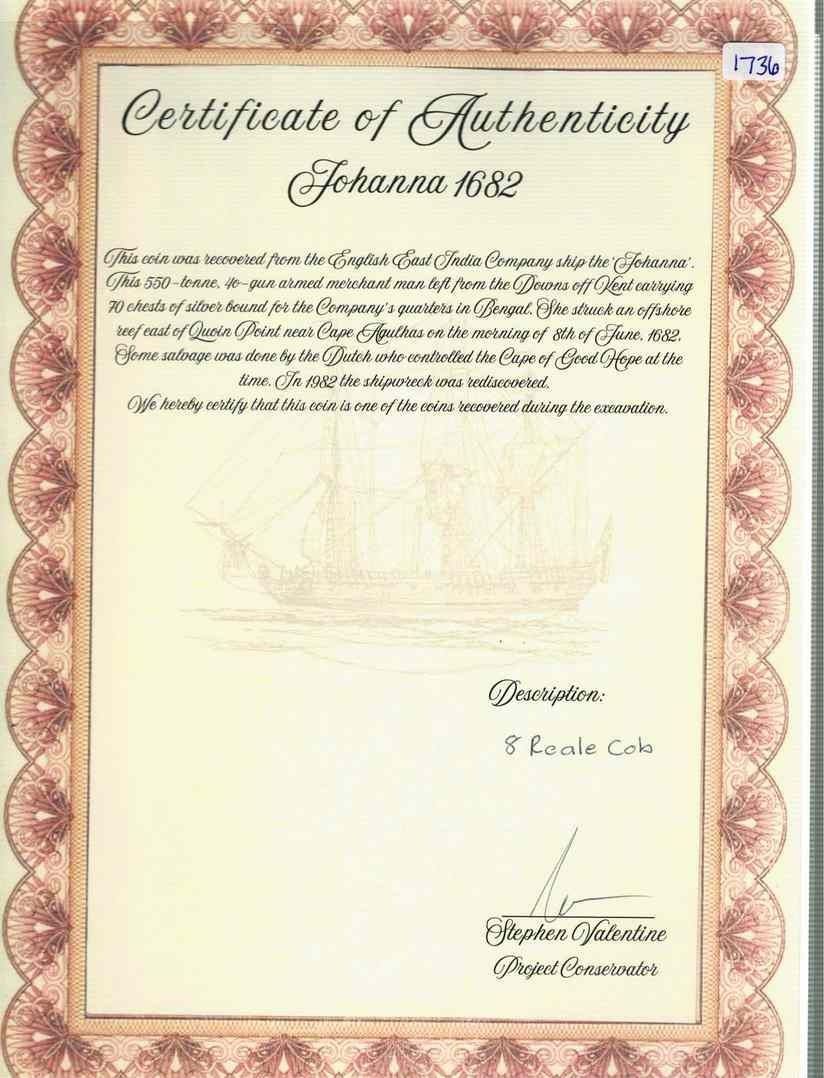 1736
Certificate of Authenticity
Johanna 1682
This coin was recovered from the English East India Company ship the 'Johanna'.
This 550-tonne, 40-gun armed merchant man left from the Downs off Kent carrying
70 chests of silver bound for the Company's quarters in Bengal. She struck an offshore
reef east of Quoin Point near Cape Agulhas on the morning of 8th of June, 1682.
Some salvage was done by the Dutch who controlled the Cape of Good Hope at the
time. In 1982 the shipwreck was rediscovered.
We hereby certify that this coin is one of the coins recovered during the excavation.
Description:
8 Reale Cob
Stephen Valentine
Project Conservator